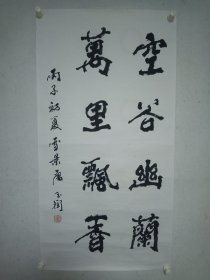 空谷幽蘭
萬里飄香
丙子初夏雪朵居